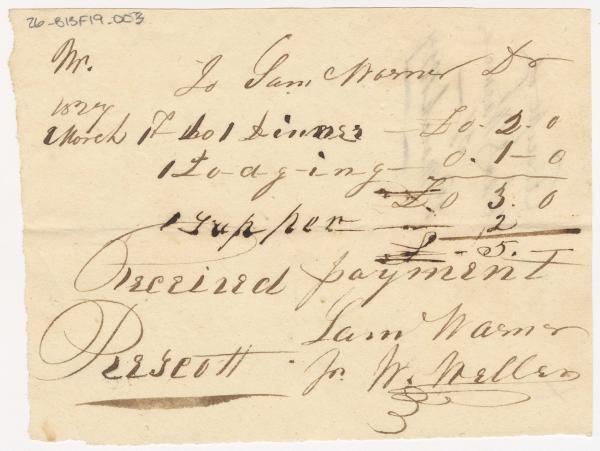 26-B13F19.003
Mr.
To Sam Warner Dr
1827
March 17 to 1 Dinner — £0. 2. 0
1 Lodging — 0. 1 - 0
£. 0 3. 0
1 Supper — 2
£ - 5. -
Received payment
Sam Warner
Prescott
W. Weller